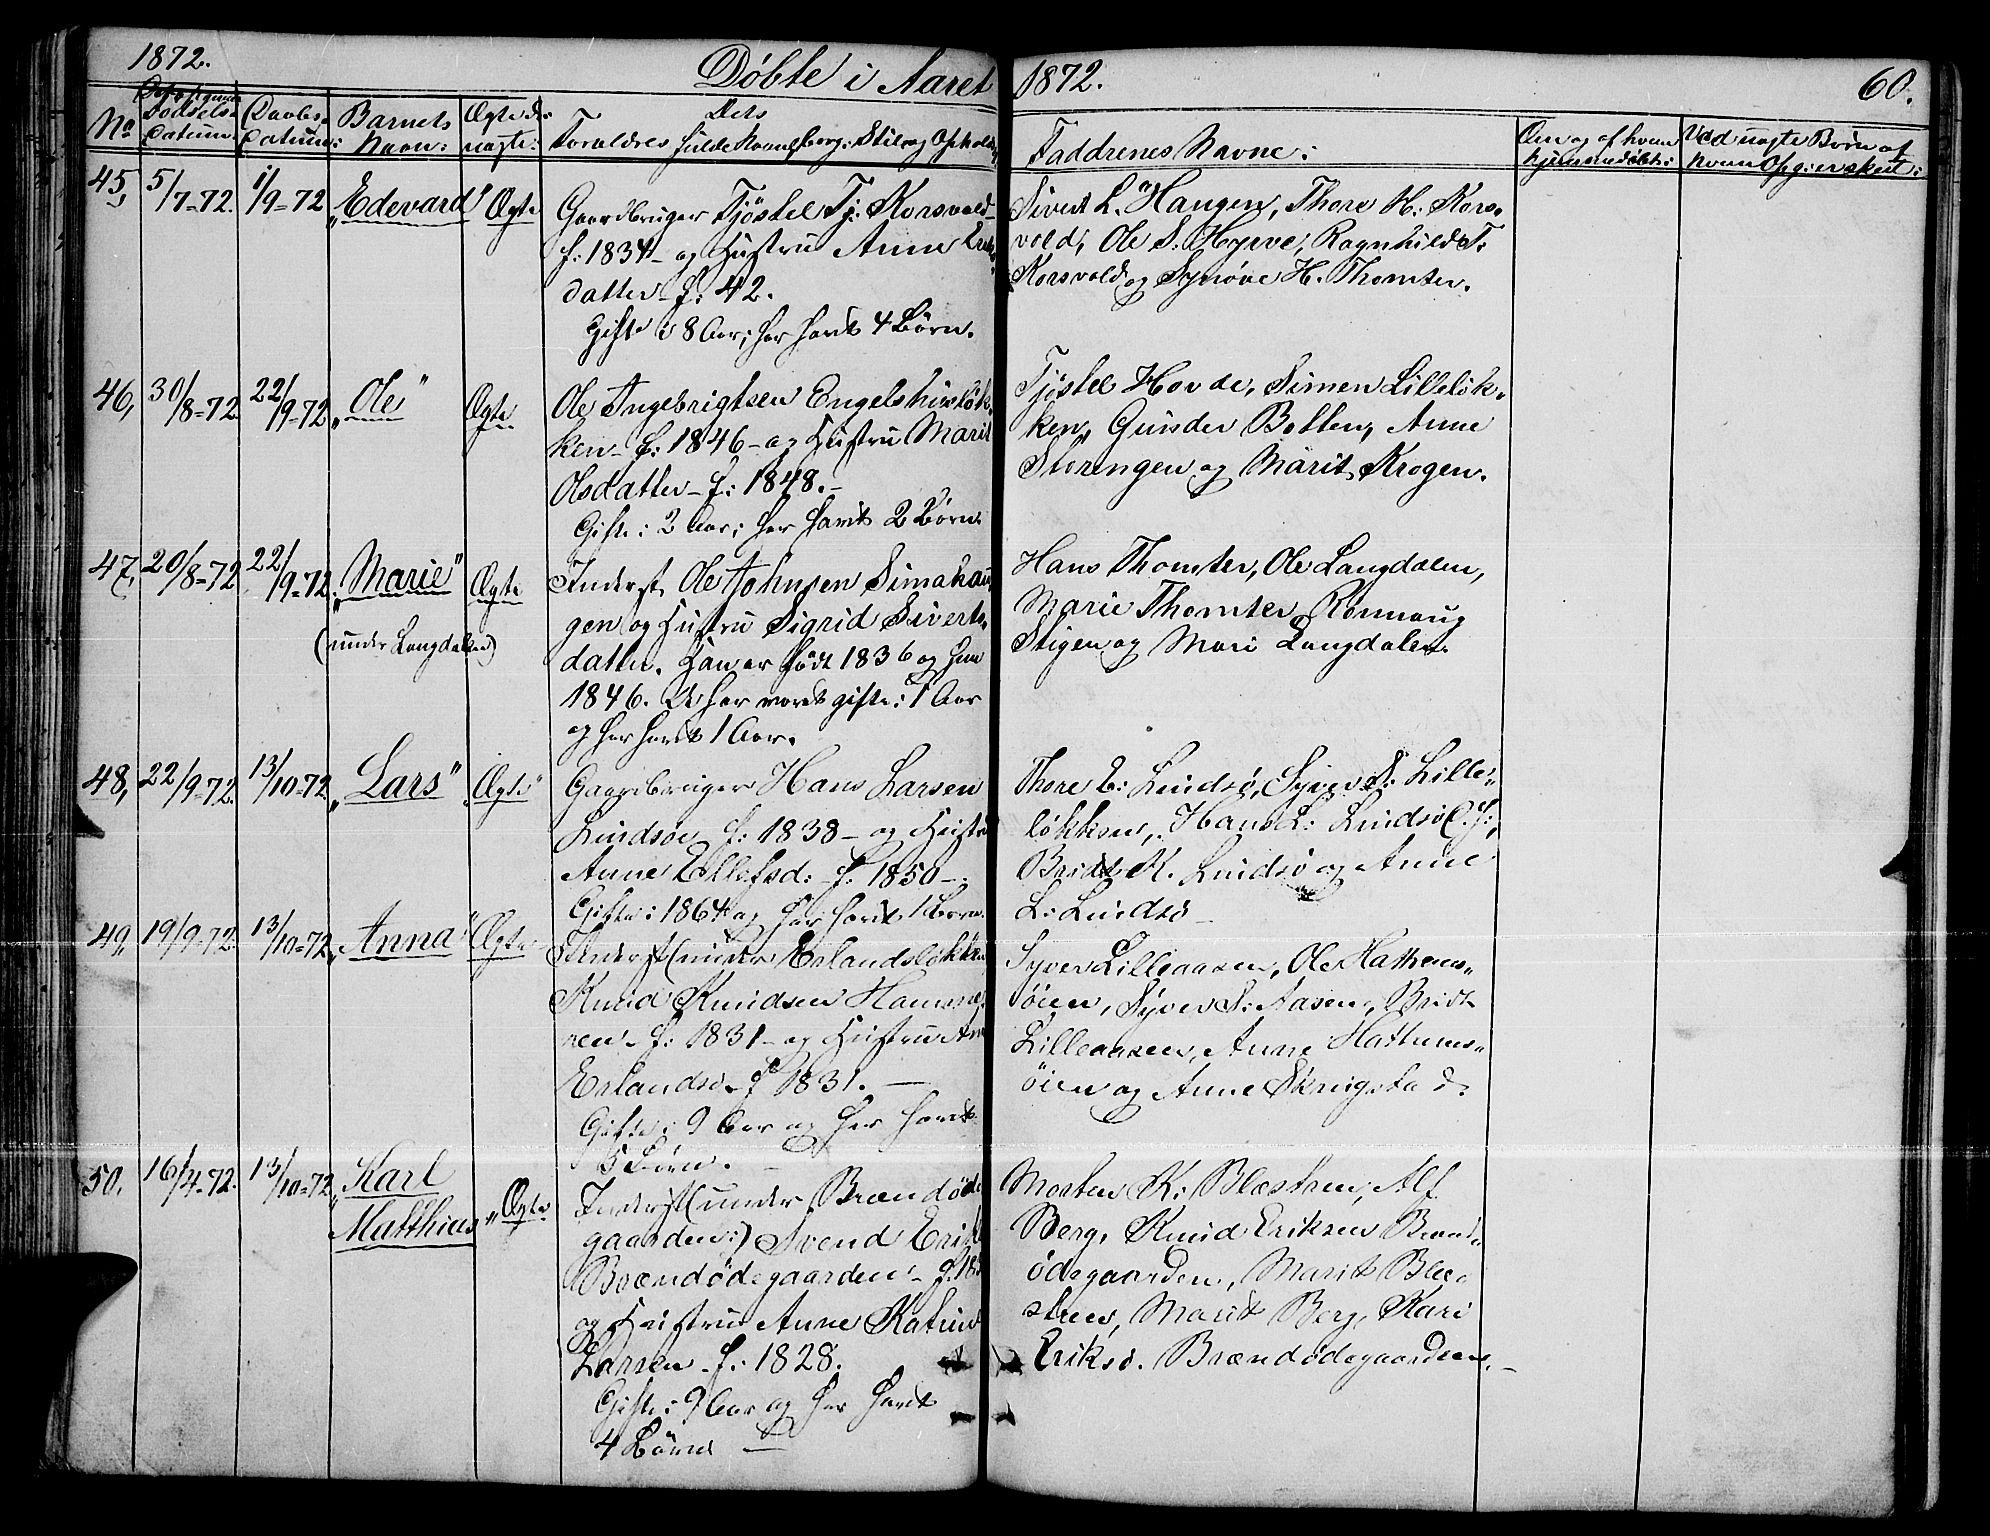 1872.
Döbte i Aaret 1872.
60.
No
Födsels-
Datum:
Daabs-
Datum:
Barnets
Navn:
Ægte el:
uægte:
Dets
Forældres fulde Navn, Borg: Stilling Ophold
Faddrenes Navne:
Om og af hvem
hjemmedöbt:
Ved uægte Börn af
hvem Opgiv. skeet:
45, 5/7-72. 1/9-72 "Edevard" Ægte
Gaardbruger Tjöstel Tj: Korsvold
f: 1834 - og Hustru Anne
datter - f: 42.
Gifte i 8 Aar; har havt 4 Börn.
Sivert L. Haugen, Thore H: Kors-
vold, Ole S. Hyrve, Ragnhild T:
Korsvold og Synöve H. Thomter.
46, 30/8-72 22/9-72 "Ole" Ægte
Ole Ingebrigtsen Engelshuslök-
ken - f: 1846 - og Hustru Marit
Olsdatter - f: 1848. -
Gifte i 2 Aar; har havt 2 Börn
Tjöstel Hovde, Simen Lillelök-
ken, Gunder Botten, Anne
Storengen og Marit Krogen.
47, 20/8-72 22/9-72 "Marie" Ægte
(under Langdalen)
Inderst Ole Johnsen Simahau-
gen og Hustru Sigrid Siverts-
datter. Han er födt 1836 og hun
1846. De har været gifte i 1 Aar
og har havt 1 Aar.
Hans Thomter, Ole Langdalen,
Marie Thomter, Ronnaug
Stigen og Mari Langdalen.
48, 22/9-72. 13/10-72 "Lars" "Ægte"
Gaardbruger Hans Larsen
Lindsöe f: 1838 - og Hustru
Anne Ellefsd: f: 1850 -
Gifte i 1864 og har havt 1 Barn.
Thore L: Lindsö, Syver S: Lille-
lökken, Hans L: Lindsö
Brit K. Lindsö og Anne
L: Lindsö -
49, 19/9-72 13/10-72 "Anna" Ægte
Inderst (under Erlandslökken
Knud Knudsen Hamme-
ren - f: 1831 - og Hustru
Erlandsd. f 1831. -
Gifte i 9 Aar og har havt
5 Börn. -
Syver Lilleaasen, Ole Hattrems-
öien, Syver S: Aasen, Brit
Lilleaasen, Anne Hattrems-
öien og Anne Skrugstad.
50. 16/4-72. 13/10-72 "Karl
Matthias" Ægte
Inderst (under Brændöde-
gaarden:) Svend
Brændödegaarden - f.
og Hustru Anne
Larsen - f: 1828.
Gifte i 9 Aar og har havt
4 Börn -
Morten K: Blæstren, Alf
Berg, Knud Eriksen Brænd-
ödegaarden, Marit Blæ-
stren, Marit Berg, Kari
Eriksd. Brændödegaarden. -